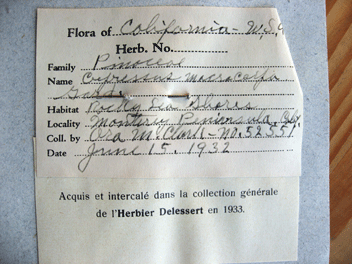 Flora of California - U.S.A
Herb. No.
Family Pinaceae
Name Cupressus macrocarpa
Habitat Rocky Sea Shores
Locality Monterey Peninsula, Calif.
Coll. by Ora M. Clark - No.
Date June 15. 1932
Acquis et intercalé dans la collection générale
de l'Herbier Delessert en 1933.